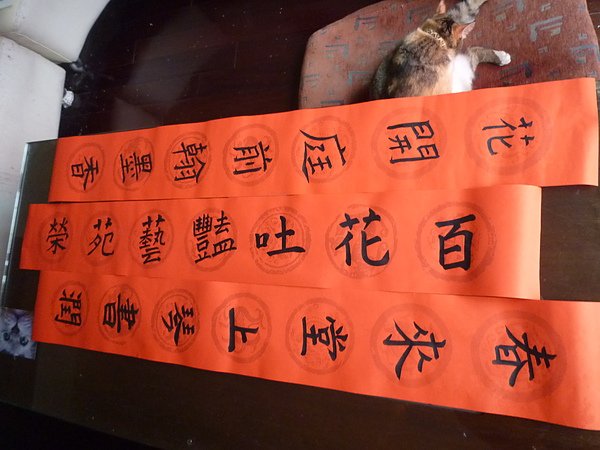 春來堂上琴書潤
百花吐豔藝苑榮
花開庭前翰墨香